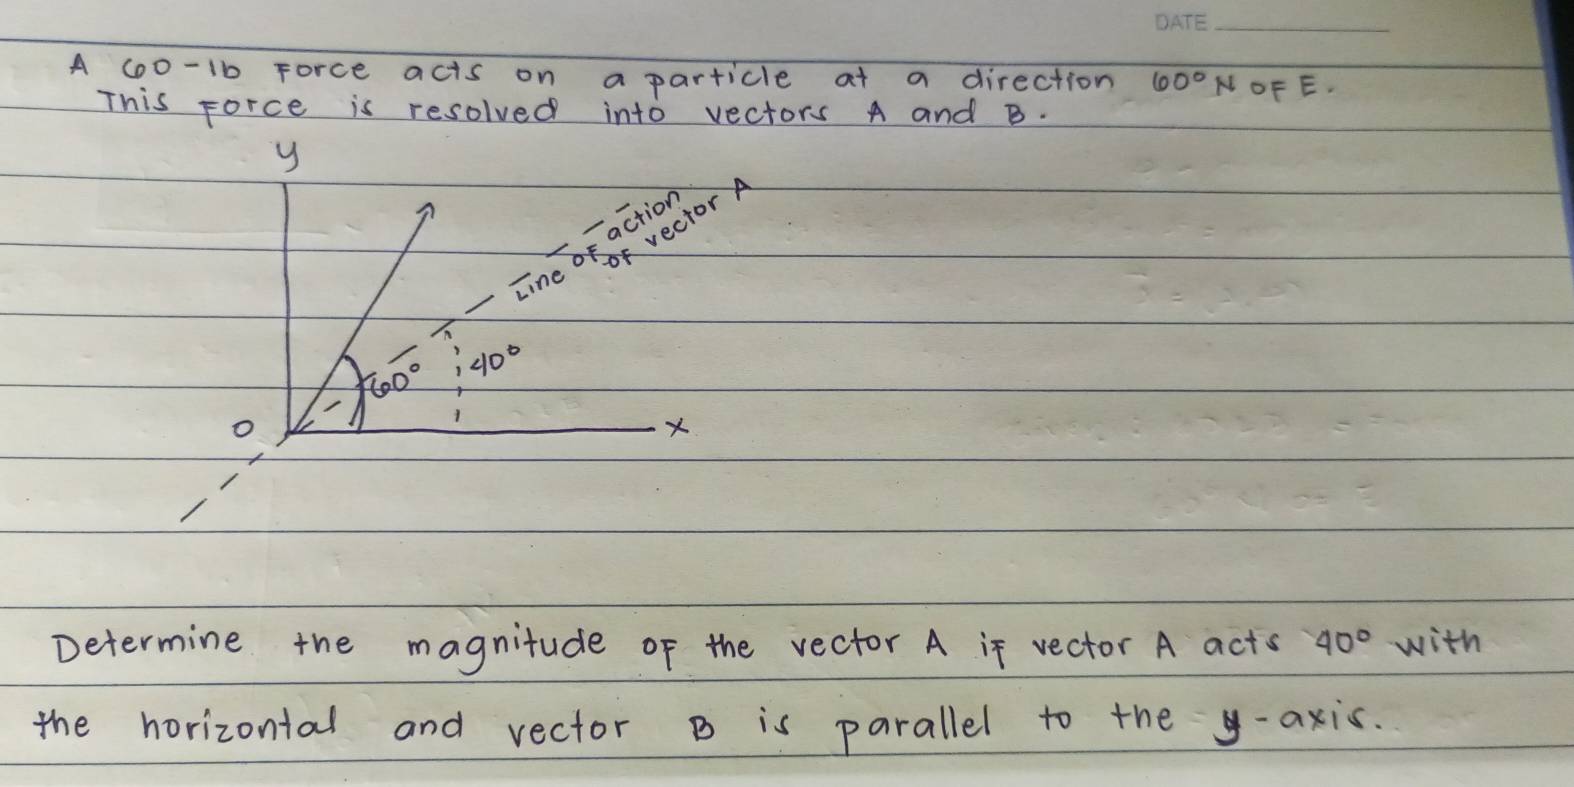 DATE
A 60-lb Force acts on a particle at a direction 60° N OF E.
This Force is resolved into vectors A and B.
y
Line OF action
OF vector A
60°
40°
O
x
Determine the magnitude OF the vector A if vector A acts 40° with
the horizontal and vector B is parallel to the y-axis.